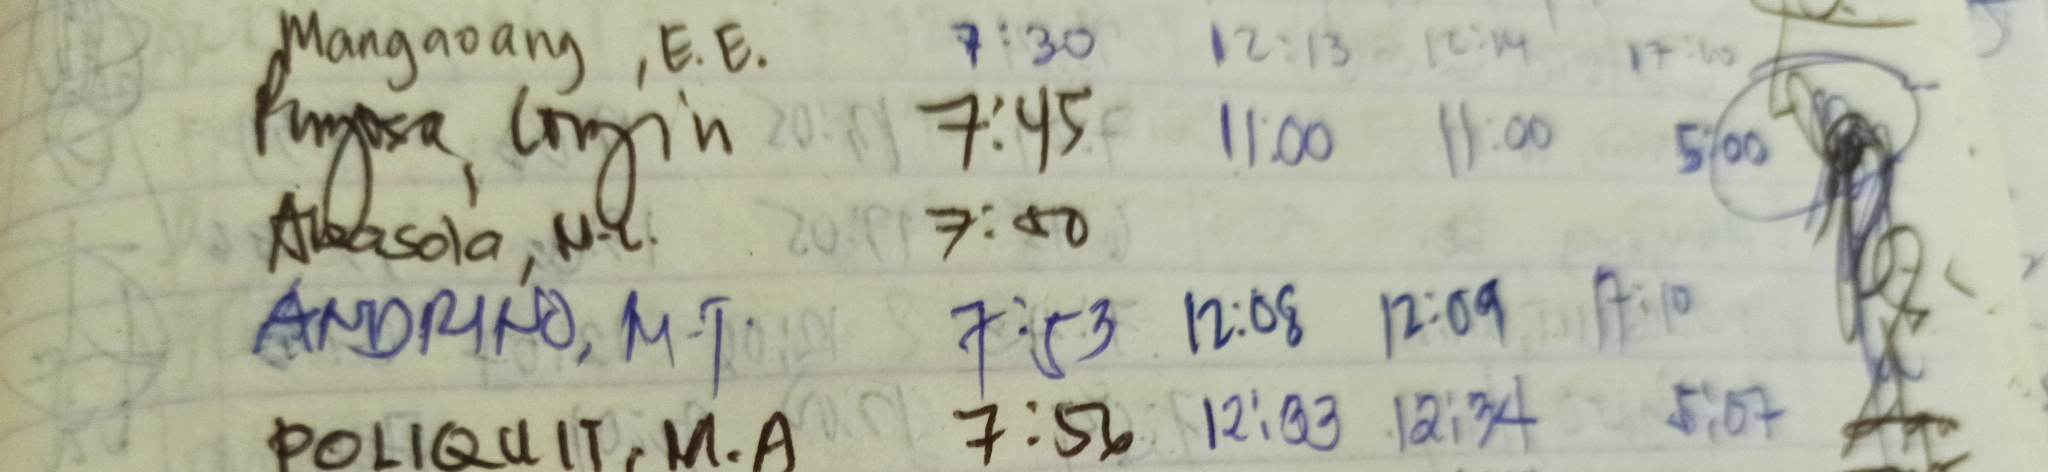 Mangaoang, E.E. 7:30 12:13 12:14 17:00
7:45 11:00 11:00 5:00
Abasola, N.L. 7:50
ANDRINO, M.T. 7:53 12:08 12:09 17:10
POLIQUIT, M.A 7:56 12:33 12:34 5:07